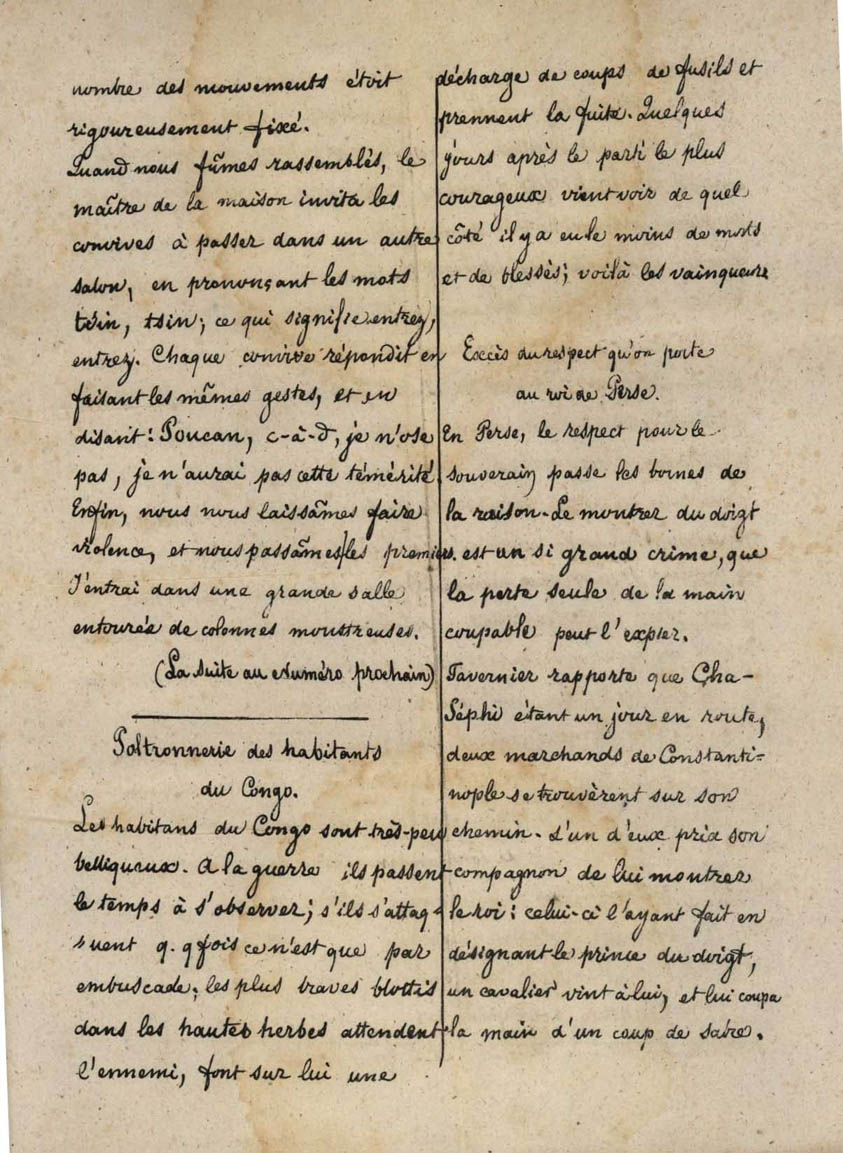 nombre des mouvements étoit
rigoureusement fixé.
Quand nous fûmes rassemblés, le
maître de la maison invita les
convives à passer dans un autre
salon, en prononçant les mots
tsin, tsin; ce qui signifie entrez,
entrez. Chaque convive répondit en
faisant les mêmes gestes, et en
disant: Poucan, c-à-d, je n'ose
pas, je n'aurai pas cette témérité.
Enfin, nous nous laissâmes faire
violence, et nous passâmes les premiers.
J'entrai dans une grande salle
entourée de colonnes monstreuses.
(La suite au Numéro prochain)
Poltronnerie des habitants
du Congo.
Les habitans du Congo sont très-peu
belliqueux. A la guerre ils passent
le temps à s'observer; s'ils s'attaq-
uent q. qfois ce n'est que par
embuscade; les plus braves blottis
dans les hautes herbes attendent
l'ennemi, font sur lui une
décharge de coups de fusils et
prennent la fuite. Quelques
jours après le parti le plus
courageux vient voir de quel
côté il y a eu le moins de morts
et de blessés; voilà les vainqueurs
Excès du respect qu'on porte
au roi de Perse.
En Perse, le respect pour le
souverain passe les bornes de
la raison. Le montrer du doigt
est un si grand crime, que
la perte seule de la main
coupable peut l'expier.
Tavernier rapporte que Cha-
Séphi étant un jour en route,
deux marchands de Constanti=
nople se trouvèrent sur son
chemin. L'un d'eux pria son
compagnon de lui montrer
le roi: celui-ci l'ayant fait en
désignant le prince du doigt,
un cavalier vint à lui, et lui coupa
la main d'un coup de sabre.